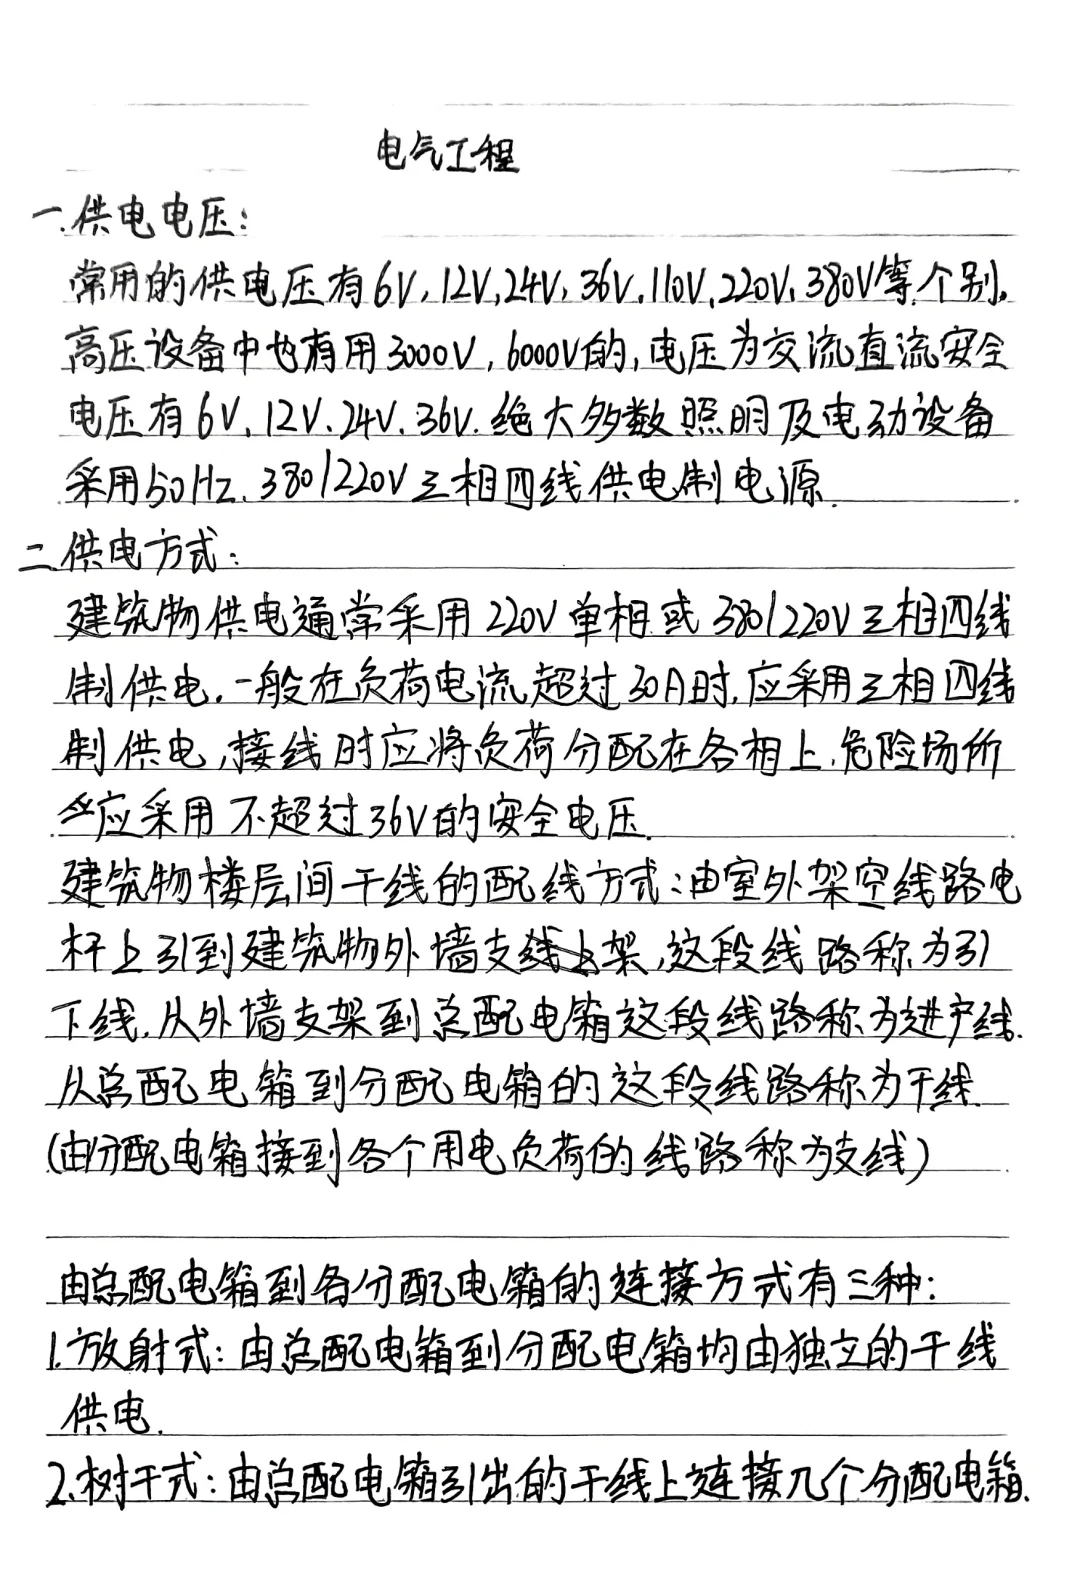 电气工程
一.供电电压：
常用的供电压有6V，12V，24V，36V、110V、220V、380V等个别，
高压设备中也有用3000V，6000V的，电压为交流直流安全
电压有6V、12V、24V、36V. 绝大多数照明及电动设备
采用50Hz、380/220V三相四线供电制电源.
二.供电方式：
建筑物供电通常采用220V单相或380/220V三相四线
制供电.一般在负荷电流超过30A时，应采用三相四线
制供电，接线时应将负荷分配在各相上.危险场所
应采用不超过36V的安全电压.
建筑物楼层间干线的配线方式：由室外架空线路电
杆上引到建筑物外墙支架，这段线路称为引
下线，从外墙支架到总配电箱这段线路称为进户线.
从总配电箱到分配电箱的这段线路称为干线.
(由分配电箱接到各个用电负荷的线路称为支线)
由总配电箱到各分配电箱的连接方式有三种：
1.放射式：由总配电箱到分配电箱均由独立的干线
供电.
2.树干式：由总配电箱引出的干线上连接几个分配电箱.